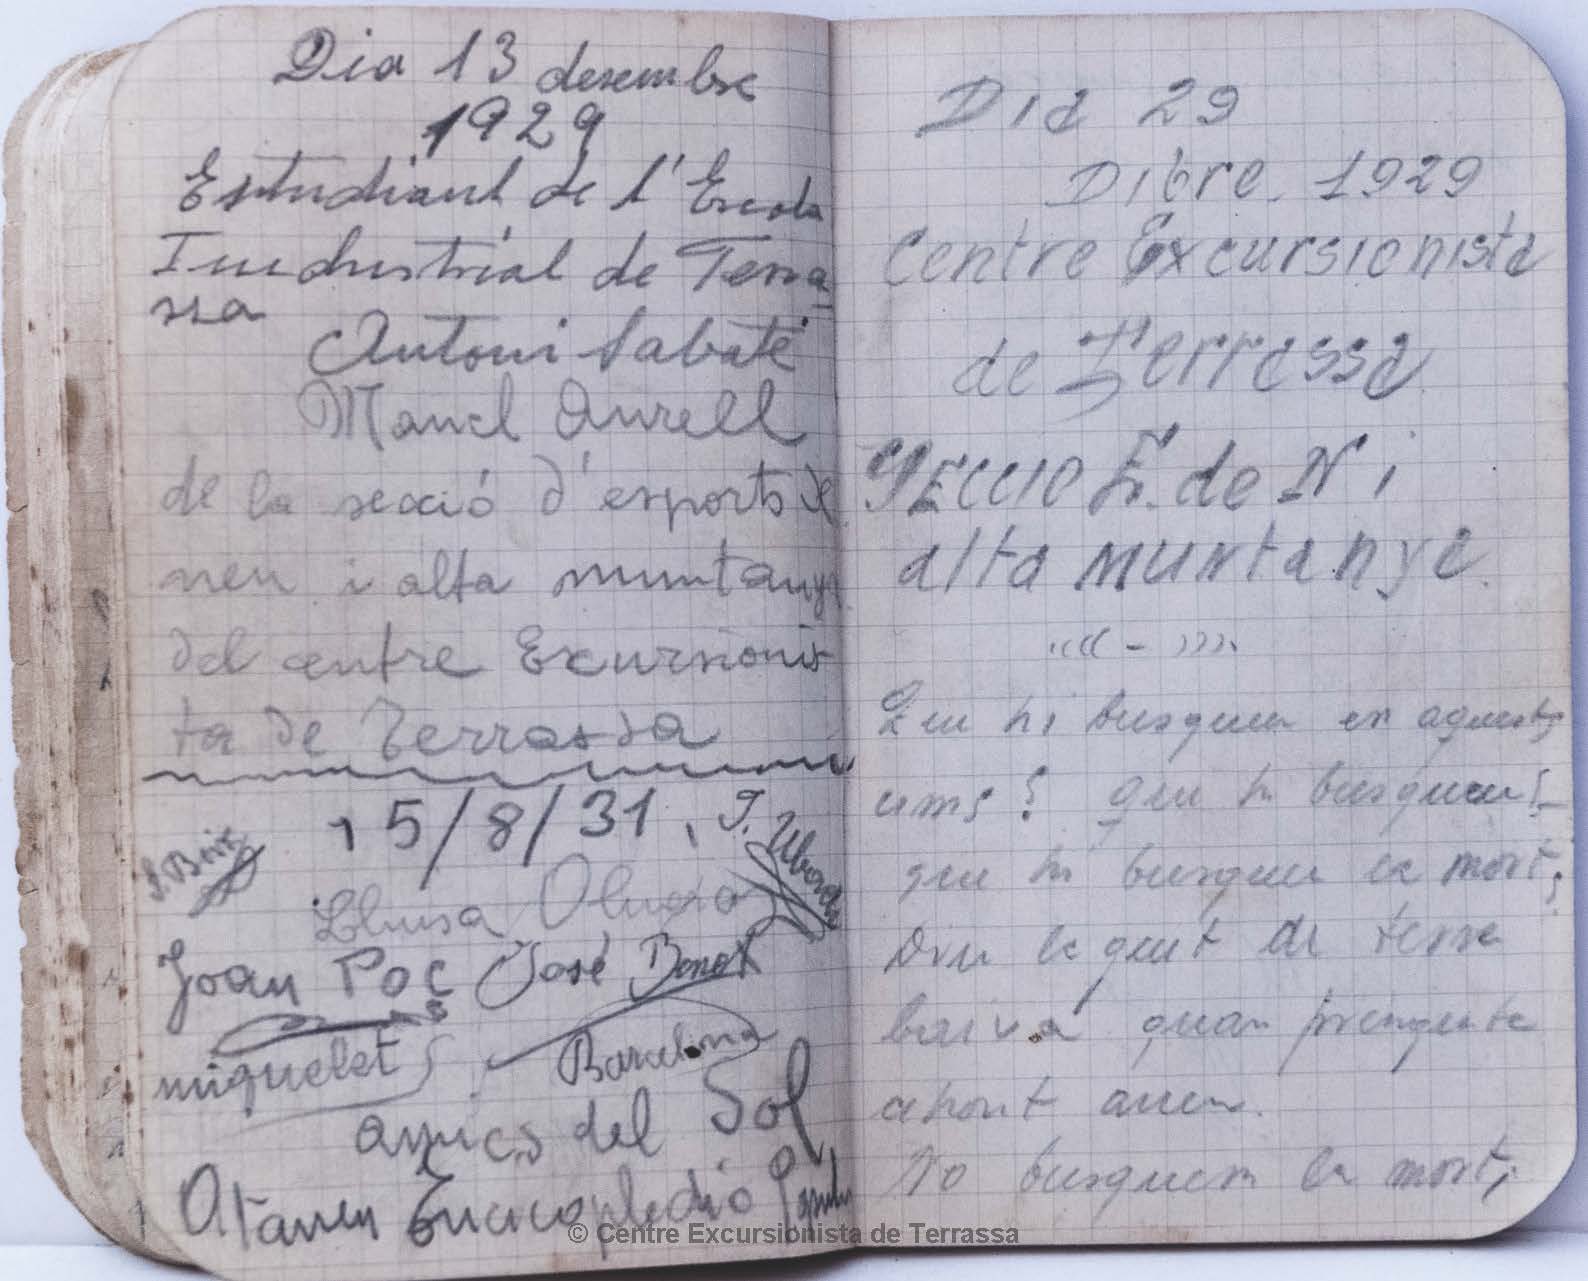 Dia 13 desembre
1929
Estudiant de l'Escola
Industrial de Terra
ssa
Antoni Sabaté
Manel Aurell
de la secció d'esports de
neu i alta muntanya
del centre Excursionis
ta de Terrassa
15/8/31.
Lluisa
Joan Poc José Bonet
miquelet Barcelona
amics del Sol
Ateneu Enciclopedic Popular
Dia 29
Dibre. 1929
Centre Excursionista
de Terrassa
SECCIO E. de N i
alta muntanya.
Que hi busqueu en aquests
cims? que hi busqueu?
que hi busqueu la mort;
Diu la gent de terra
baixa quan pregunta
ahont aneu.
No busquem la mort,
© Centre Excursionista de Terrassa